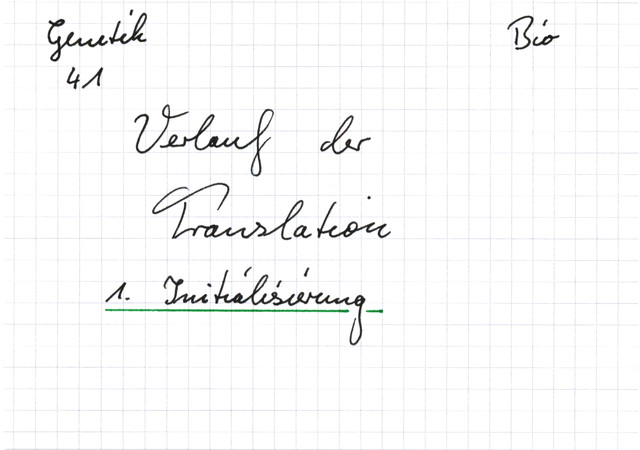 Genetik Bio
41
Verlauf der
Translation
1. Initialisierung